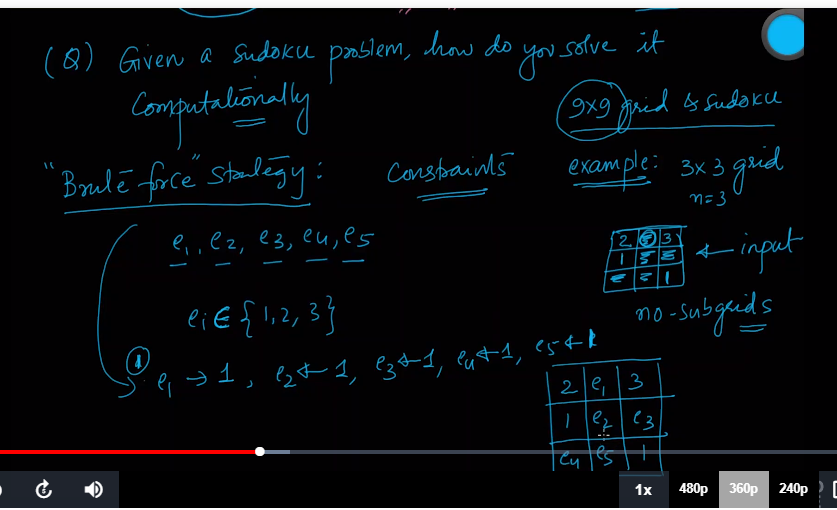 (Q) Given a sudoku problem, how do you solve it
Computationally
9x9 grid & sudoku
"Brute force" Strategy :
Constraints
example: 3x3 grid
n=3
e1, e2, e3, e4, e5
2 3
1
1
← input
no-subgrids
ei ∈ {1,2,3}
① e1 → 1, e2 ← 1, e3 ← 1, e4 ← 1, e5 ← 1
2 e1 3
1 e2 e3
e4 e5 1
1x 480p 360p 240p